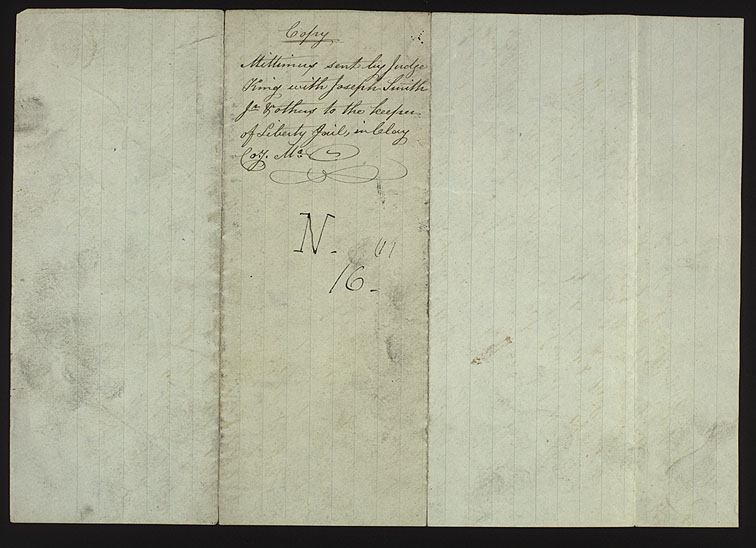 Copy
Mittimus sent by Judge
King with Joseph Smith
Jr. & others to the keeper
of Liberty Jail, in Clay
Coy. Mo.
N.
16